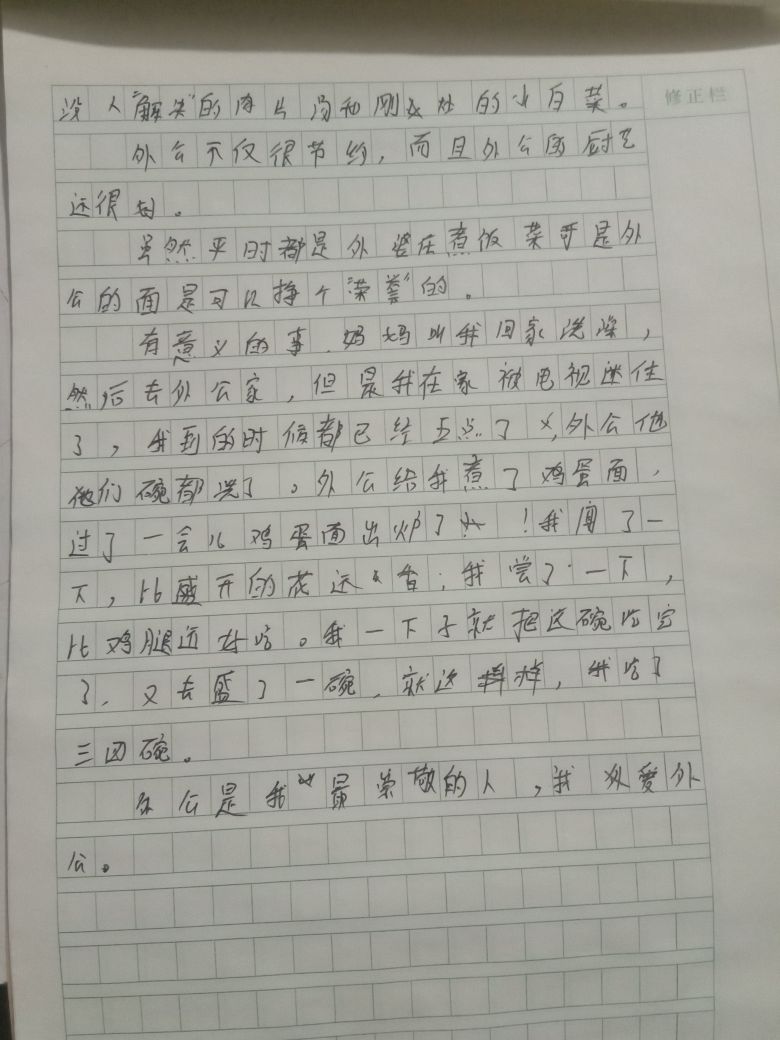 修正栏
没人"解决"的肉片汤和刚出灶的小白菜。
外公不仅很节约,而且外公的厨艺
还很好。
虽然平时都是外婆在煮饭菜可是外
公的面是可以挣个"荣誉"的。
有意义的事,妈妈叫我回家洗澡,
然后去外公家,但是我在家被电视迷住
了,我到的时候都已经五点了,外公他
他们碗都洗了。外公给我煮了鸡蛋面,
过了一会儿鸡蛋面出炉了!我闻了一
下,比盛开的花还香;我尝了一下,
比鸡腿还好吃。我一下子就把这碗吃完
了,又去盛了一碗,就这样,我吃了
三四碗。
外公是我最崇敬的人,我爱外
公。